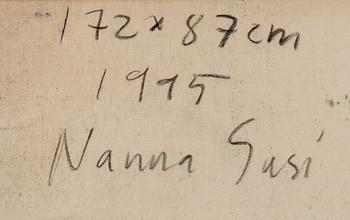 172x87cm
1995
Nanna Susi